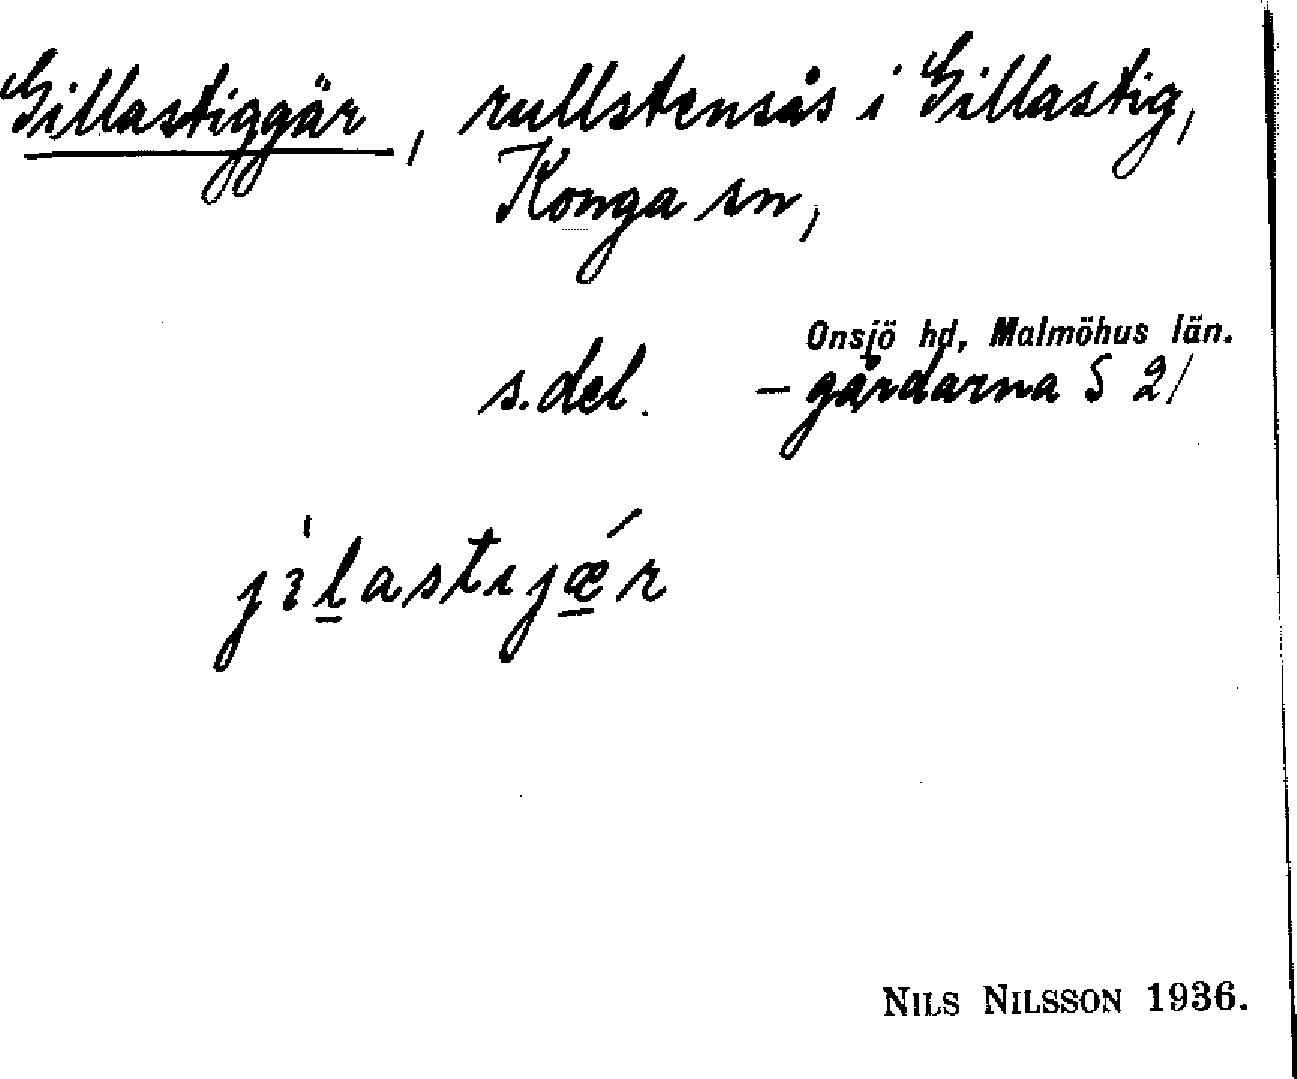 Gillastiggär, rullstensås i Gillastig,
Konga sn,
Onsjö hd, Malmöhus län.
s. del. – gårdarna S 21
jìlastɩjǽr
NILS NILSSON 1936.